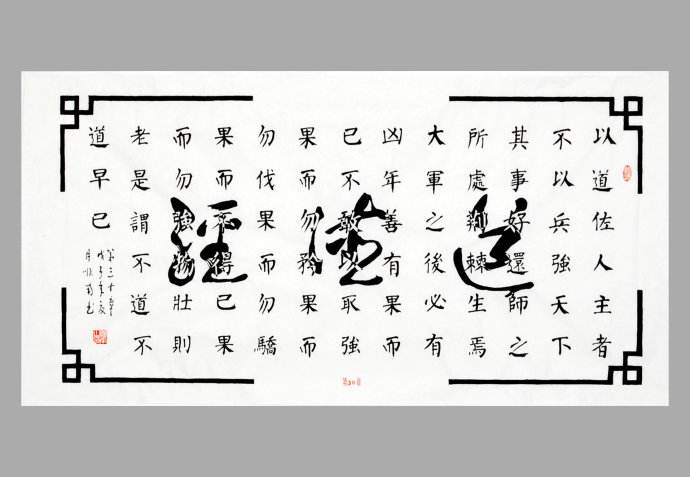 道德經
以道佐人主者
不以兵強天下
其事好還師之
所處荆棘生焉
大軍之後必有
凶年善有果而
已不敢以取強
果而勿矜果而
勿伐果而勿驕
果而不得已果
而勿強物壯則
老是謂不道不
道早已
第三十章
戊子年夏